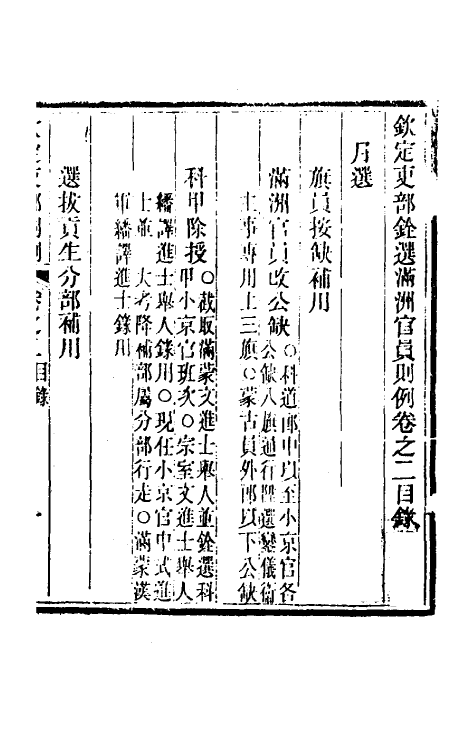 欽定吏部銓選滿洲官員則例卷之二目錄
月選
旗員按缺補用
滿洲官員改公缺○科道郎中以至小京官各
公缺八旗通行陞選鑾儀衛
主事專用上三旗○蒙古員外郎以下公缺
科甲除授○截取滿蒙文進士舉人並銓選科
甲小京官班次○宗室文進士舉人
繙譯進士舉人錄用○現任小京官中式進
士並大考降補部屬分部行走○滿蒙漢
軍繙譯進士錄用
選拔貢生分部補用